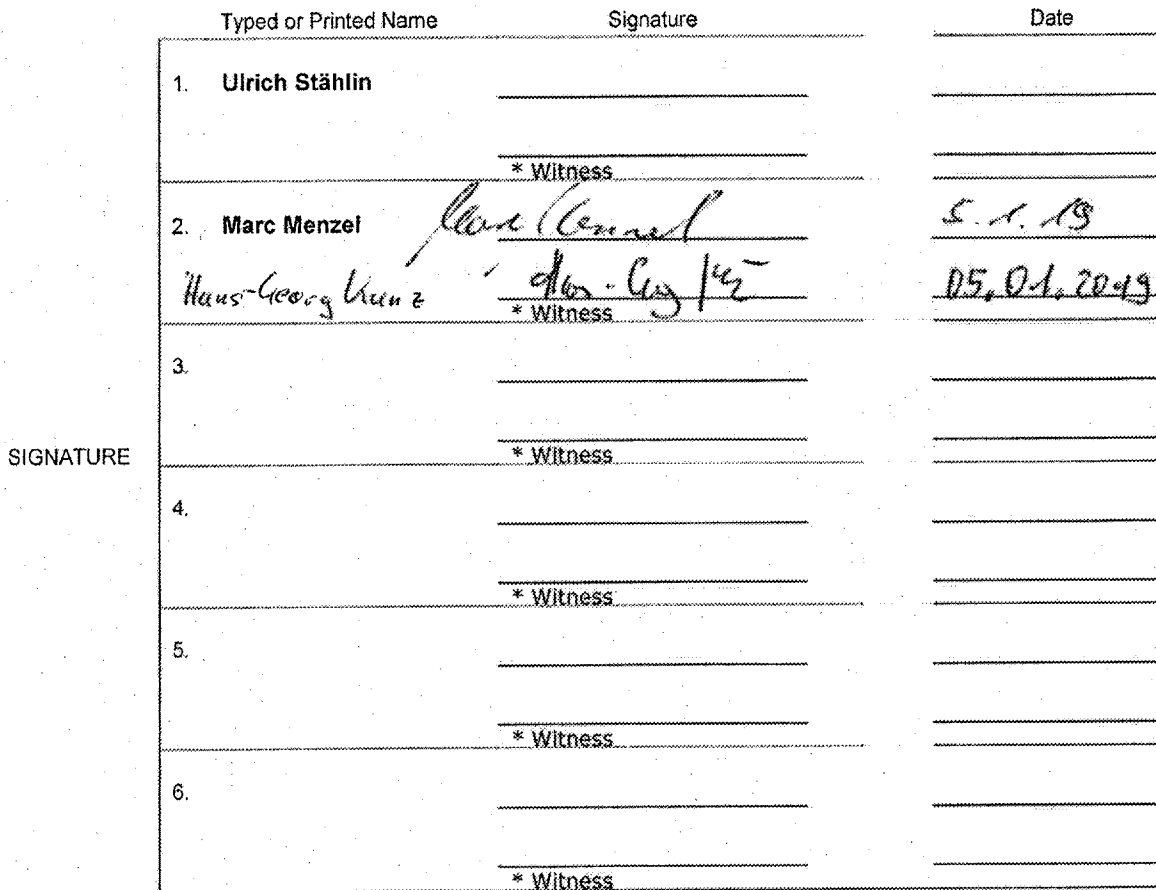 Typed or Printed Name Signature Date
1. Ulrich Stählin
* Witness
2. Marc Menzel Marc Menzel 5.1.19
Hans-Georg Kunz 05.01.2019
* Witness
3.
* Witness
SIGNATURE
4.
* Witness
5.
* Witness
6.
* Witness